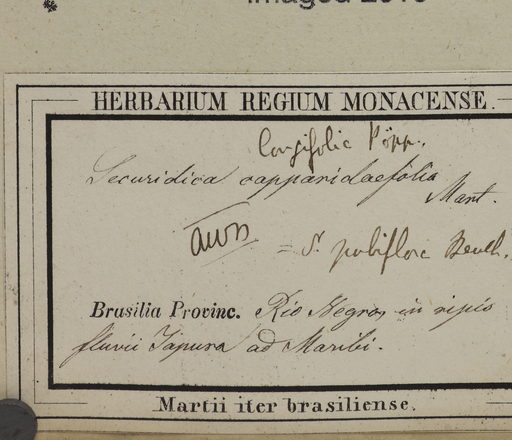 Imaged 2010
HERBARIUM REGIUM MONACENSE.
longifolia Pöpp.
Securidica capparidaefolia
Mart.
= S. pubiflora Benth.
Brasilia Provinc. Rio Negro, in ripis
fluvii Japura ad Maribi.
Martii iter brasiliense.